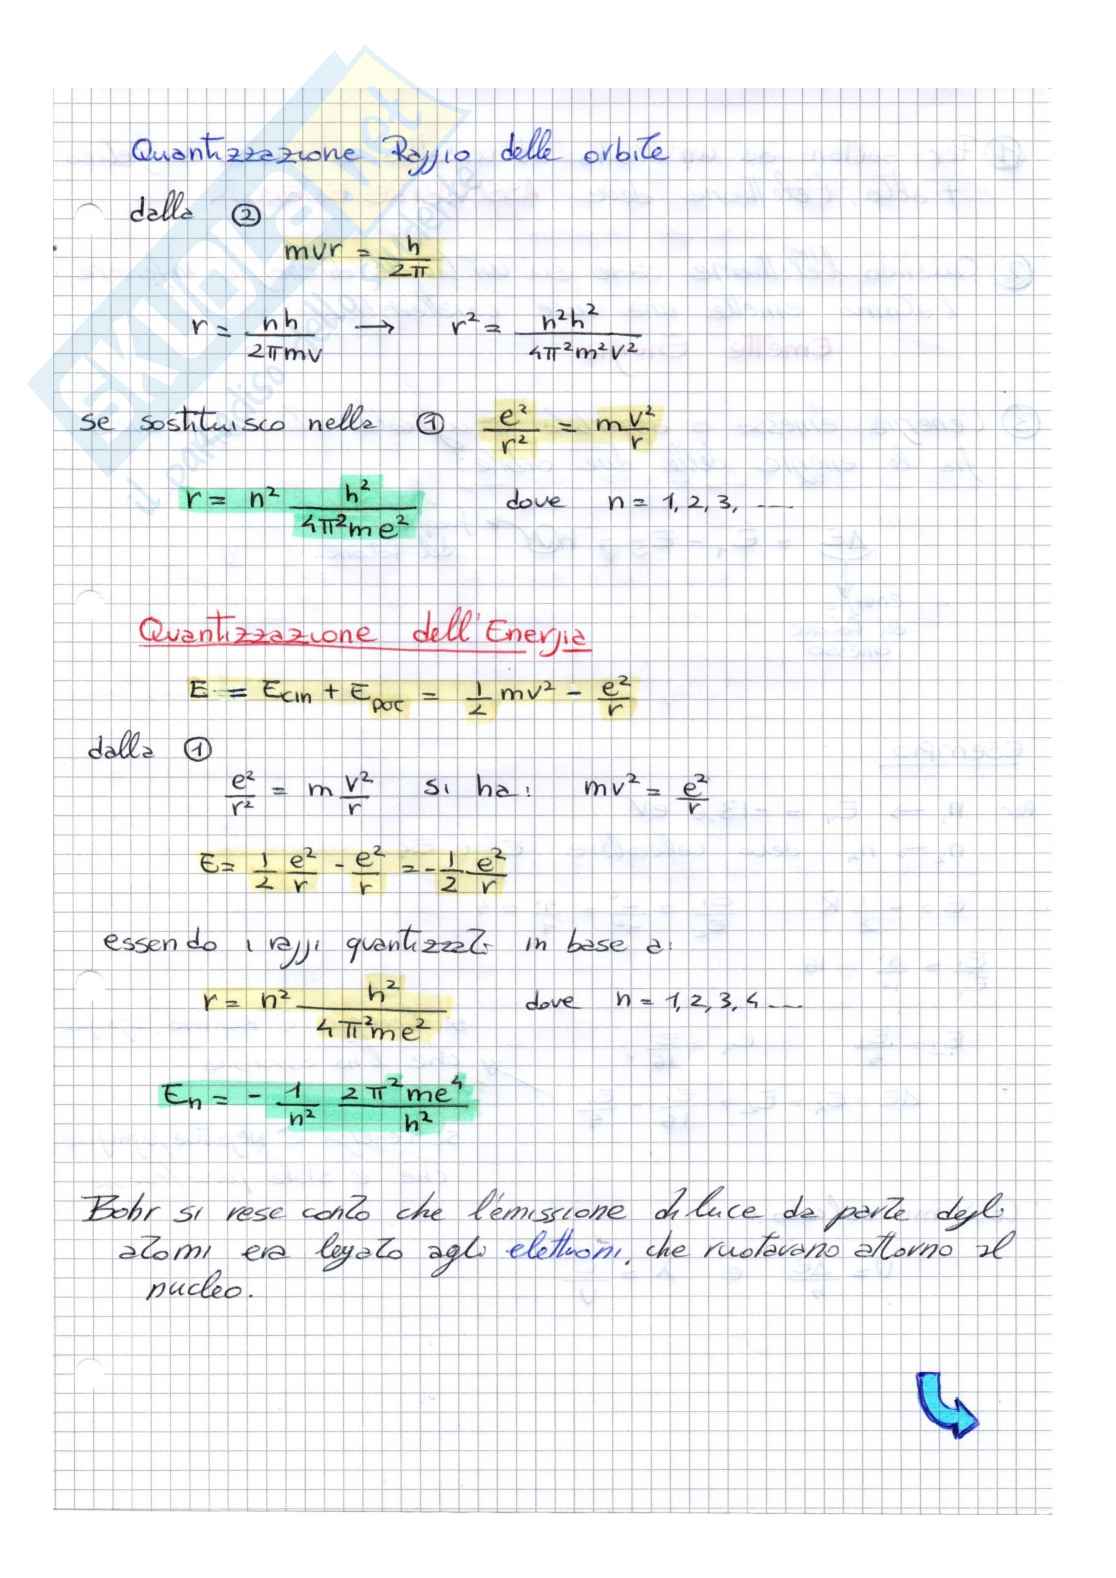 Quantizzazione Raggio delle orbite
dalla ②
mvr = h/2π
r = nh/2πmv → r² = n²h²/4π²m²v²
se sostituisco nella ① e²/r² = m v²/r
r = n² h²/4π²me² dove n = 1, 2, 3, ....
Quantizzazione dell'Energia
E = Ecin + Epot = 1/2 mv² - e²/r
dalla ①
e²/r² = m v²/r si ha: mv² = e²/r
E = 1/2 e²/r - e²/r = - 1/2 e²/r
essendo i raggi quantizzati in base a:
r = n² h²/4π²me² dove n = 1, 2, 3, 4 ....
En = - 1/n² 2π²me⁴/h²
Bohr si rese conto che l'emissione di luce da parte degli
atomi era legato agli elettroni, che ruotavano attorno al
nucleo.
SKUOLA.net
il paradiso dello studente